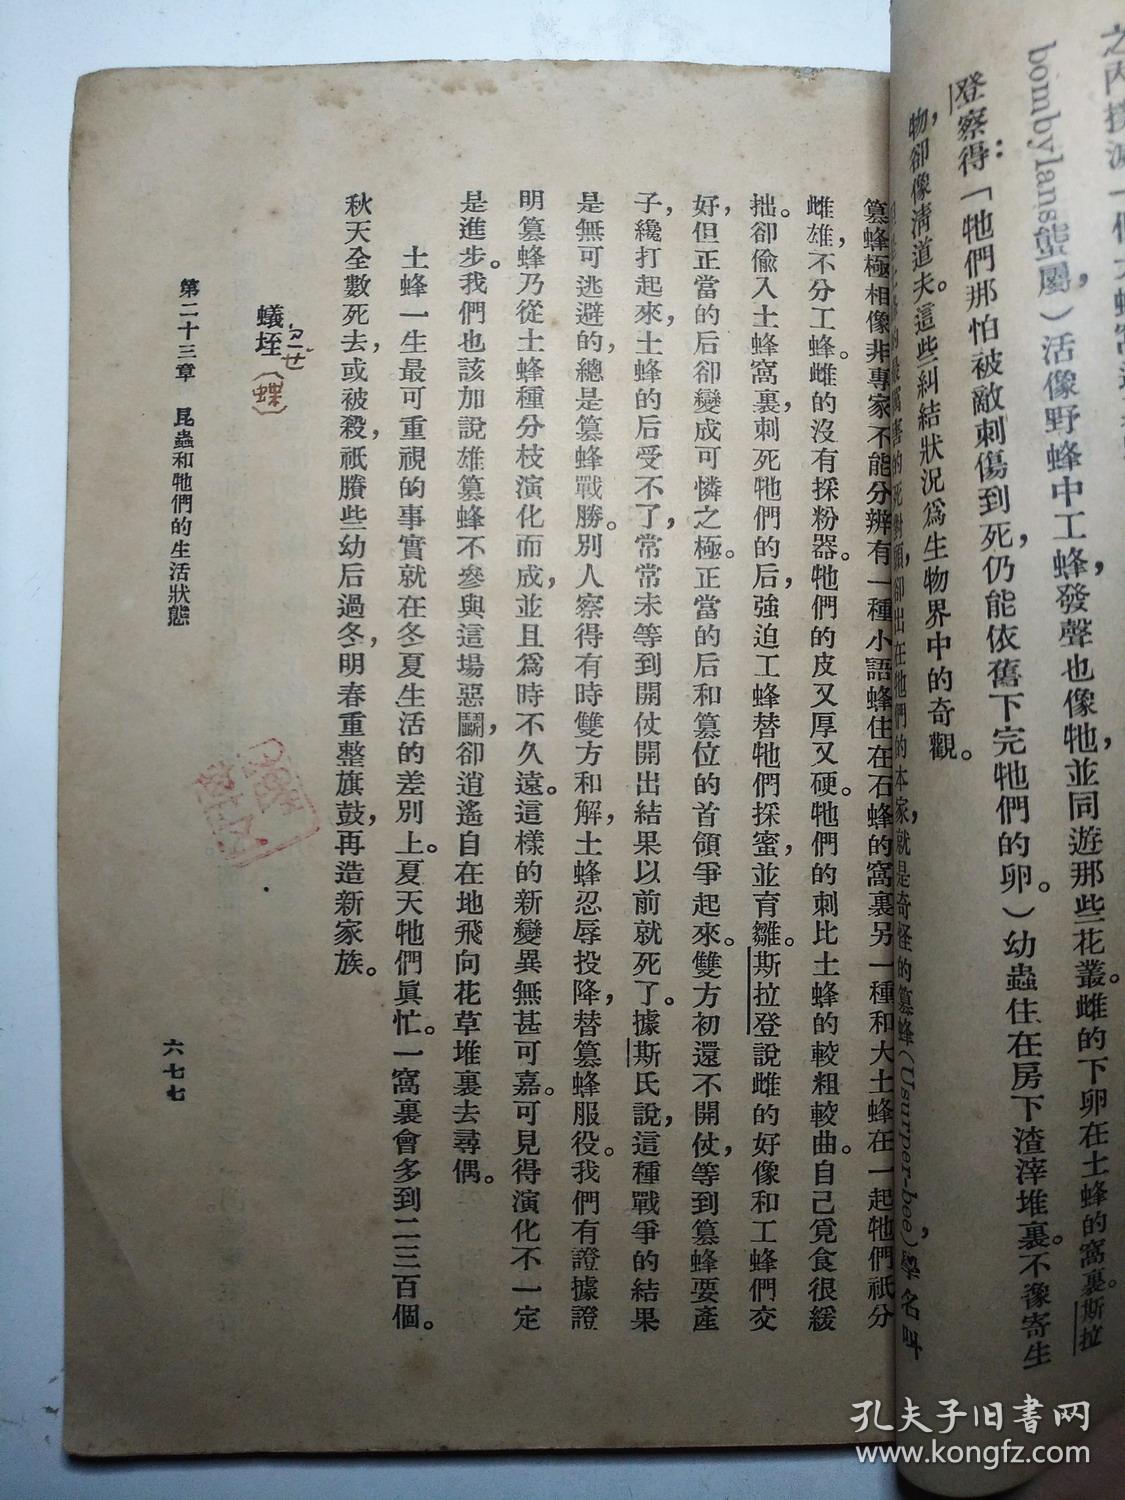 bombylans螫屬)活像野蜂中工蜂發聲也像牠,並同遊那些花叢。雌的下卵在土蜂的窩裏。斯拉
登察得:「牠們那怕被敵刺傷到死,仍能依舊下完牠們的卵。)幼蟲住在房下渣滓堆裏。不像寄生
物,卻像清道夫。這些糾結狀況爲生物界中的奇觀。
死對頭,卻出在牠們的本家,就是奇怪的篡蜂(Usurper-bee)學名叫
篡蜂極相像非專家不能分辨有一種小語蜂住在石蜂的窩裏另一種和大土蜂在一起牠們祇分
雌雄,不分工蜂。雌的沒有採粉器。牠們的皮又厚又硬。牠們的刺比土蜂的較粗較曲。自己覓食很緩
拙。卻偸入土蜂窩裏,刺死牠們的后,強迫工蜂替牠們採蜜,並育雛。斯拉登說雌的好像和工蜂們交
好,但正當的后卻變成可憐之極。正當的后和篡位的首領爭起來。雙方初還不開仗,等到篡蜂要產
子,纔打起來,土蜂的后受不了,常常未等到開仗開出結果以前就死了。據斯氏說,這種戰爭的結果
是無可逃避的,總是篡蜂戰勝。別人察得有時雙方和解,土蜂忍辱投降,替篡蜂服役。我們有證據證
明篡蜂乃從土蜂種分枝演化而成,並且爲時不久遠。這樣的新變異無甚可嘉。可見得演化不一定
是進步。我們也該加說雄篡蜂不參與這場惡鬭,卻逍遙自在地飛向花草堆裏去尋偶。
土蜂一生最可重視的事實就在冬夏生活的差別上。夏天牠們眞忙。一窩裏會多到二三百個。
秋天全數死去,或被殺,祇賸些幼后過冬,明春重整旗鼓,再造新家族。
蟻垤(蝶)
第二十三章 昆蟲和牠們的生活狀態
六七七
孔夫子旧書网
www.kongfz.com